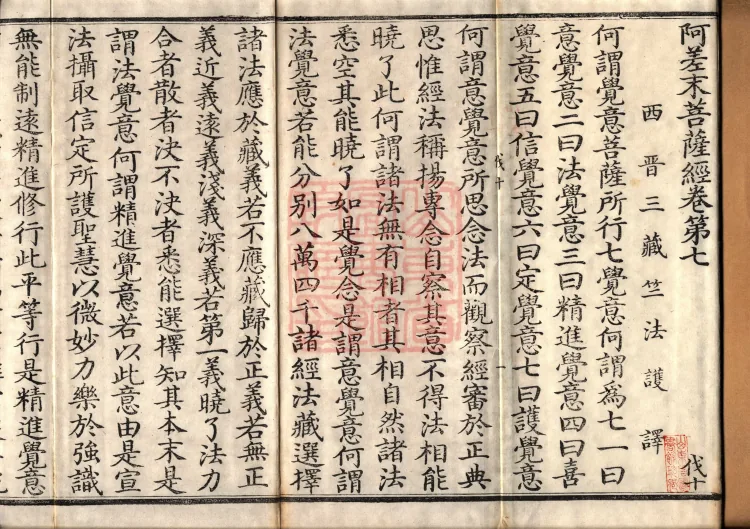 阿差末菩薩經卷第七
伐十
西晋三藏竺法護譯
何謂覺意菩薩所行七覺意何謂為七一曰
意覺意二曰法覺意三曰精進覺意四曰喜
覺意五曰信覺意六曰定覺意七曰護覺意
伐十
一
何謂意覺意所思念法而觀察經審於正典
思惟經法稱揚專念自察其意不得法相能
曉了此何謂諸法無有相者其相自然諸法
悉空其能曉了如是覺念是謂意覺意何謂
法覺意若能分別八萬四千諸經法藏選擇
諸法應於藏義若不應藏歸於正義若無正
義近義遠義淺義深義若第一義曉了法力
合者散者決不決者悉能選擇知其本末是
謂法覺意何謂精進覺意若以此意由是宣
法攝取信定所護聖慧以微妙力樂於強識
無能制遠精進修行此平等行是精進覺意